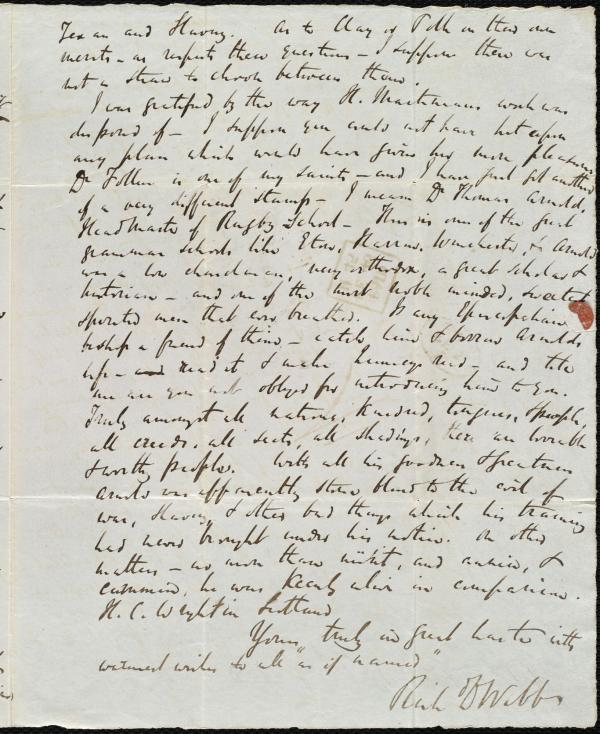 Texan and Slavery. As to Clay & Polk on their own
merits - as respects these questions - I suppose there was
not a straw to choose between them.
I was gratified by the way H. Martineau's work was
disposed of - I suppose you could not have hit upon
any plan which would have given her more pleasure.
Dr Follen is one of my saints - and I have just got another
of a very different stamp - I mean Dr Thomas Arnold,
Head Master of Rugby School - This is one of the great
grammar schools like Eton, Harrow, Winchester, & Arnold
was a low churchman, very orthodox, a great scholar &
historian - and one of the most noble minded, sweetest
spirited men that ever breathed. Is any Episcopalian
bishop a friend of thine - catch him & borrow Arnold's
life - and read it & make Hennery read - and tell
me are you not obliged for introducing him to you.
Truly amongst all nations, kindred, tongues, & people,
all creeds, all sects, all shadings, there are loveable
& worthy people. With all his goodness & greatness
Arnold was apparently stone blind to the evil of
war, slavery, & other bad things which his training
had never brought under his notice. On other
matters - no more than mint, and anise, &
cummin, he was keenly alive in comparison.
H. C. Wright in Scotland
Yours truly in great haste with
warmest wishes to all "as if named"
Rich D Webb